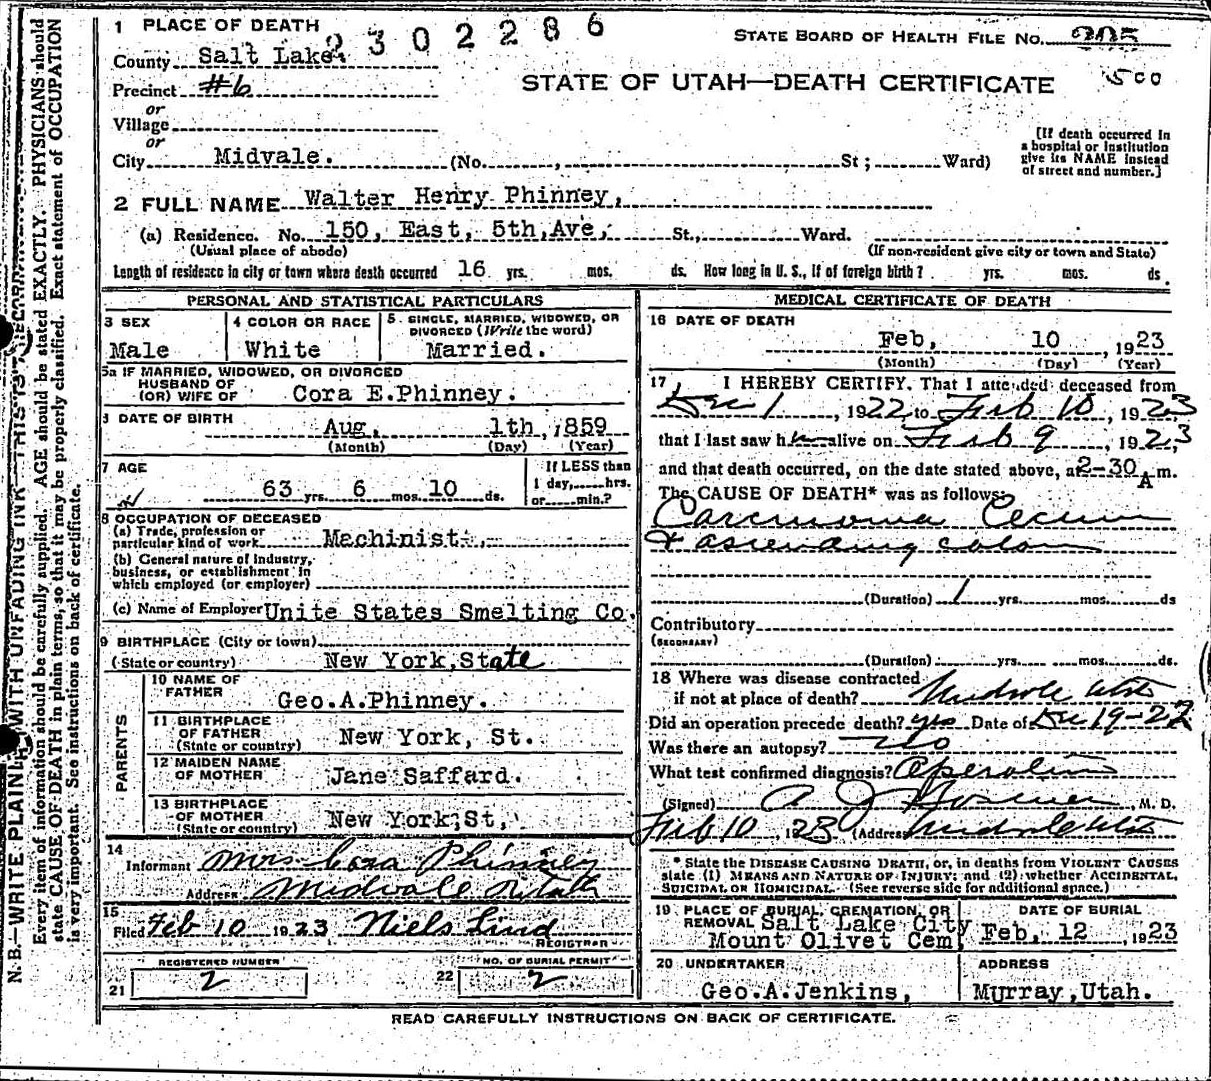 1 PLACE OF DEATH
2302286
STATE BOARD OF HEALTH FILE No. 205
County Salt Lake.
Precinct #6
STATE OF UTAH—DEATH CERTIFICATE
500
or
Village
or
City Midvale. (No. , St ; Ward)
[If death occurred in
a hospital or institution
give its NAME instead
of street and number.]
2 FULL NAME Walter Henry Phinney,
(a) Residence. No. 150, East, 5th, Ave, St., Ward.
(Usual place of abode) (If non-resident give city or town and State)
Length of residence in city or town where death occurred 16 yrs. mos. ds. How long in U. S., if of foreign birth? yrs. mos. ds.
PERSONAL AND STATISTICAL PARTICULARS
3 SEX
Male
4 COLOR OR RACE
White
5. SINGLE, MARRIED, WIDOWED, OR
DIVORCED (Write the word)
Married.
5a IF MARRIED, WIDOWED, OR DIVORCED
HUSBAND OF
(OR) WIFE OF Cora E.Phinney.
6 DATE OF BIRTH
Aug, 1th, 1859
(Month) (Day) (Year)
7 AGE
63 yrs. 6 mos. 10 ds.
If LESS than
1 day, hrs.
or min.?
8 OCCUPATION OF DECEASED
(a) Trade, profession or
particular kind of work Machinist,
(b) General nature of industry,
business, or establishment in
which employed (or employer)
(c) Name of Employer Unite States Smelting Co.
9 BIRTHPLACE (City or town)
(State or country) New York,State
PARENTS
10 NAME OF
FATHER Geo.A.Phinney.
11 BIRTHPLACE
OF FATHER
(State or country) New York, St.
12 MAIDEN NAME
OF MOTHER Jane Saffard.
13 BIRTHPLACE
OF MOTHER
(State or country) New York,St,
14
Informant Mrs Cora Phinney
Address Midvale Utah
15
Filed Feb 10 1923 Niels Lind
REGISTRAR
REGISTERED NUMBER
21 2
NO. OF BURIAL PERMIT
22 2
MEDICAL CERTIFICATE OF DEATH
16 DATE OF DEATH
Feb, 10 , 1923
(Month) (Day) (Year)
17 I HEREBY CERTIFY, That I attended deceased from
Dec 1, 1922 to Feb 10, 1923
that I last saw him alive on Feb 9, 1923,
and that death occurred, on the date stated above, at 2-30 A m.
The CAUSE OF DEATH* was as follows:
Carcinoma Cecum
+ ascending colon
(Duration) 1 yrs. mos. ds
Contributory
(SECONDARY)
(Duration) yrs. mos. ds.
18 Where was disease contracted
if not at place of death? Midvale Utah
Did an operation precede death? yes Date of Dec 19-22
Was there an autopsy? no
What test confirmed diagnosis? Operation
(Signed) A J , M. D.
Feb 10, 1923 (Address) Midvale Utah
* State the DISEASE CAUSING DEATH, or, in deaths from VIOLENT CAUSES
state (1) MEANS AND NATURE OF INJURY; and (2) whether ACCIDENTAL,
SUICIDAL OR HOMICIDAL. (See reverse side for additional space.)
19 PLACE OF BURIAL, CREMATION, OR
REMOVAL Salt Lake City
Mount Olivet Cem,
DATE OF BURIAL
Feb, 12 , 1923
20 UNDERTAKER
Geo.A.Jenkins,
ADDRESS
Murray,Utah.
READ CAREFULLY INSTRUCTIONS ON BACK OF CERTIFICATE.
N. B.—WRITE PLAINLY WITH UNFADING INK—THIS IS
Every item of information should be carefully supplied. AGE should be stated EXACTLY. PHYSICIANS should
state CAUSE OF DEATH in plain terms, so that it may be properly classified. Exact statement of OCCUPATION
is very important. See instructions on back of certificate.